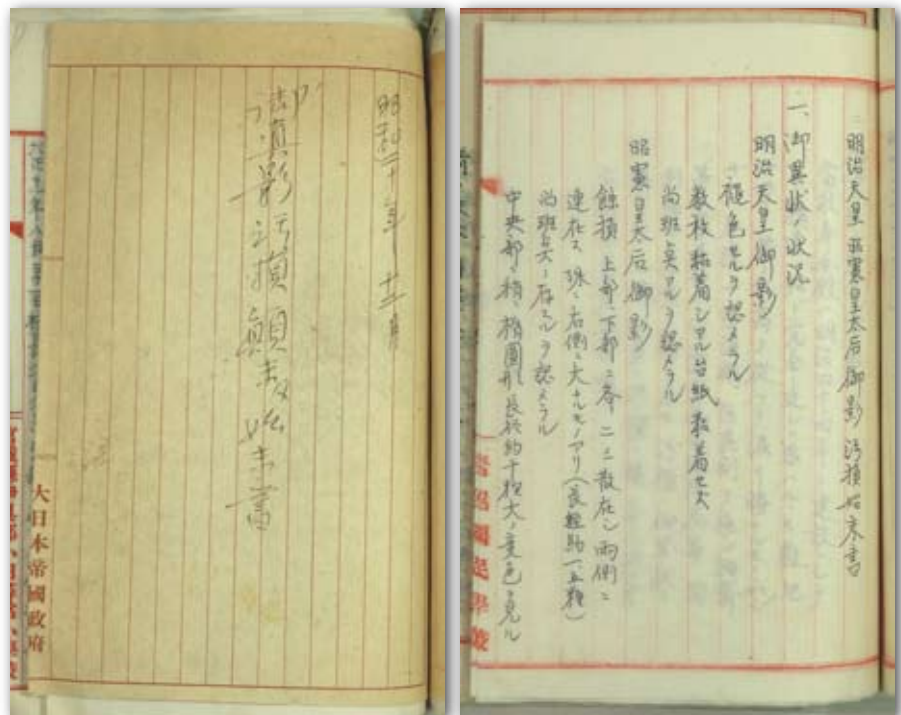 昭和二十年十二月
御真影汚損顛末始末書
大日本帝國政府
明治天皇 昭憲皇太后御影 汚損始末書
一、御異状ノ状況
明治天皇御影
褪色セルヲ認メラル
数枚ノ粘着シアル台紙粘着セズ
尚斑点アルヲ認メラル
昭憲皇太后御影
蝕損 上部、下部ニ各一二散在シ両側ニ
連在ス 殊ニ右側ニ大ナルモノアリ(長径約一、五糎)
尚斑点ノ存スルヲ認メラル
中央部ニ稍々楕圓形長径約十糎大ノ変色ヲ見ル
國民學校